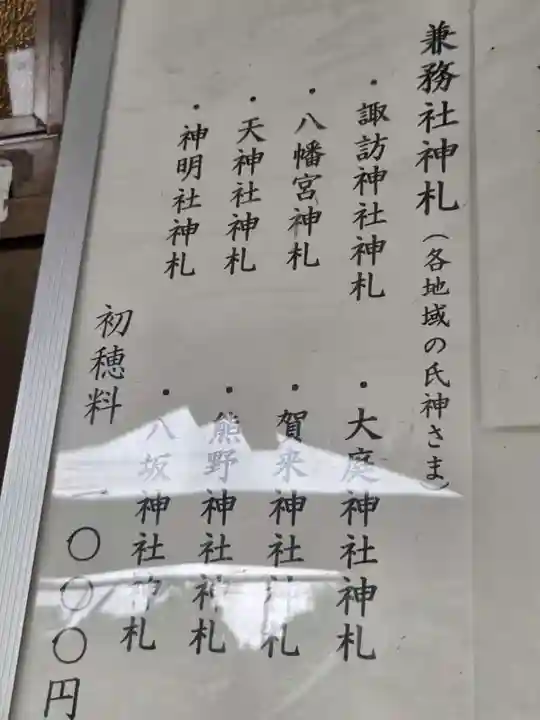 兼務社神札(各地域の氏神さま)
・諏訪神社神札
・大庭神社神札
・八幡宮神札
・賀来神社神札
・天神社神札
・熊野神社神札
・神明社神札
・八坂神社神札
初穂料 一〇〇〇円